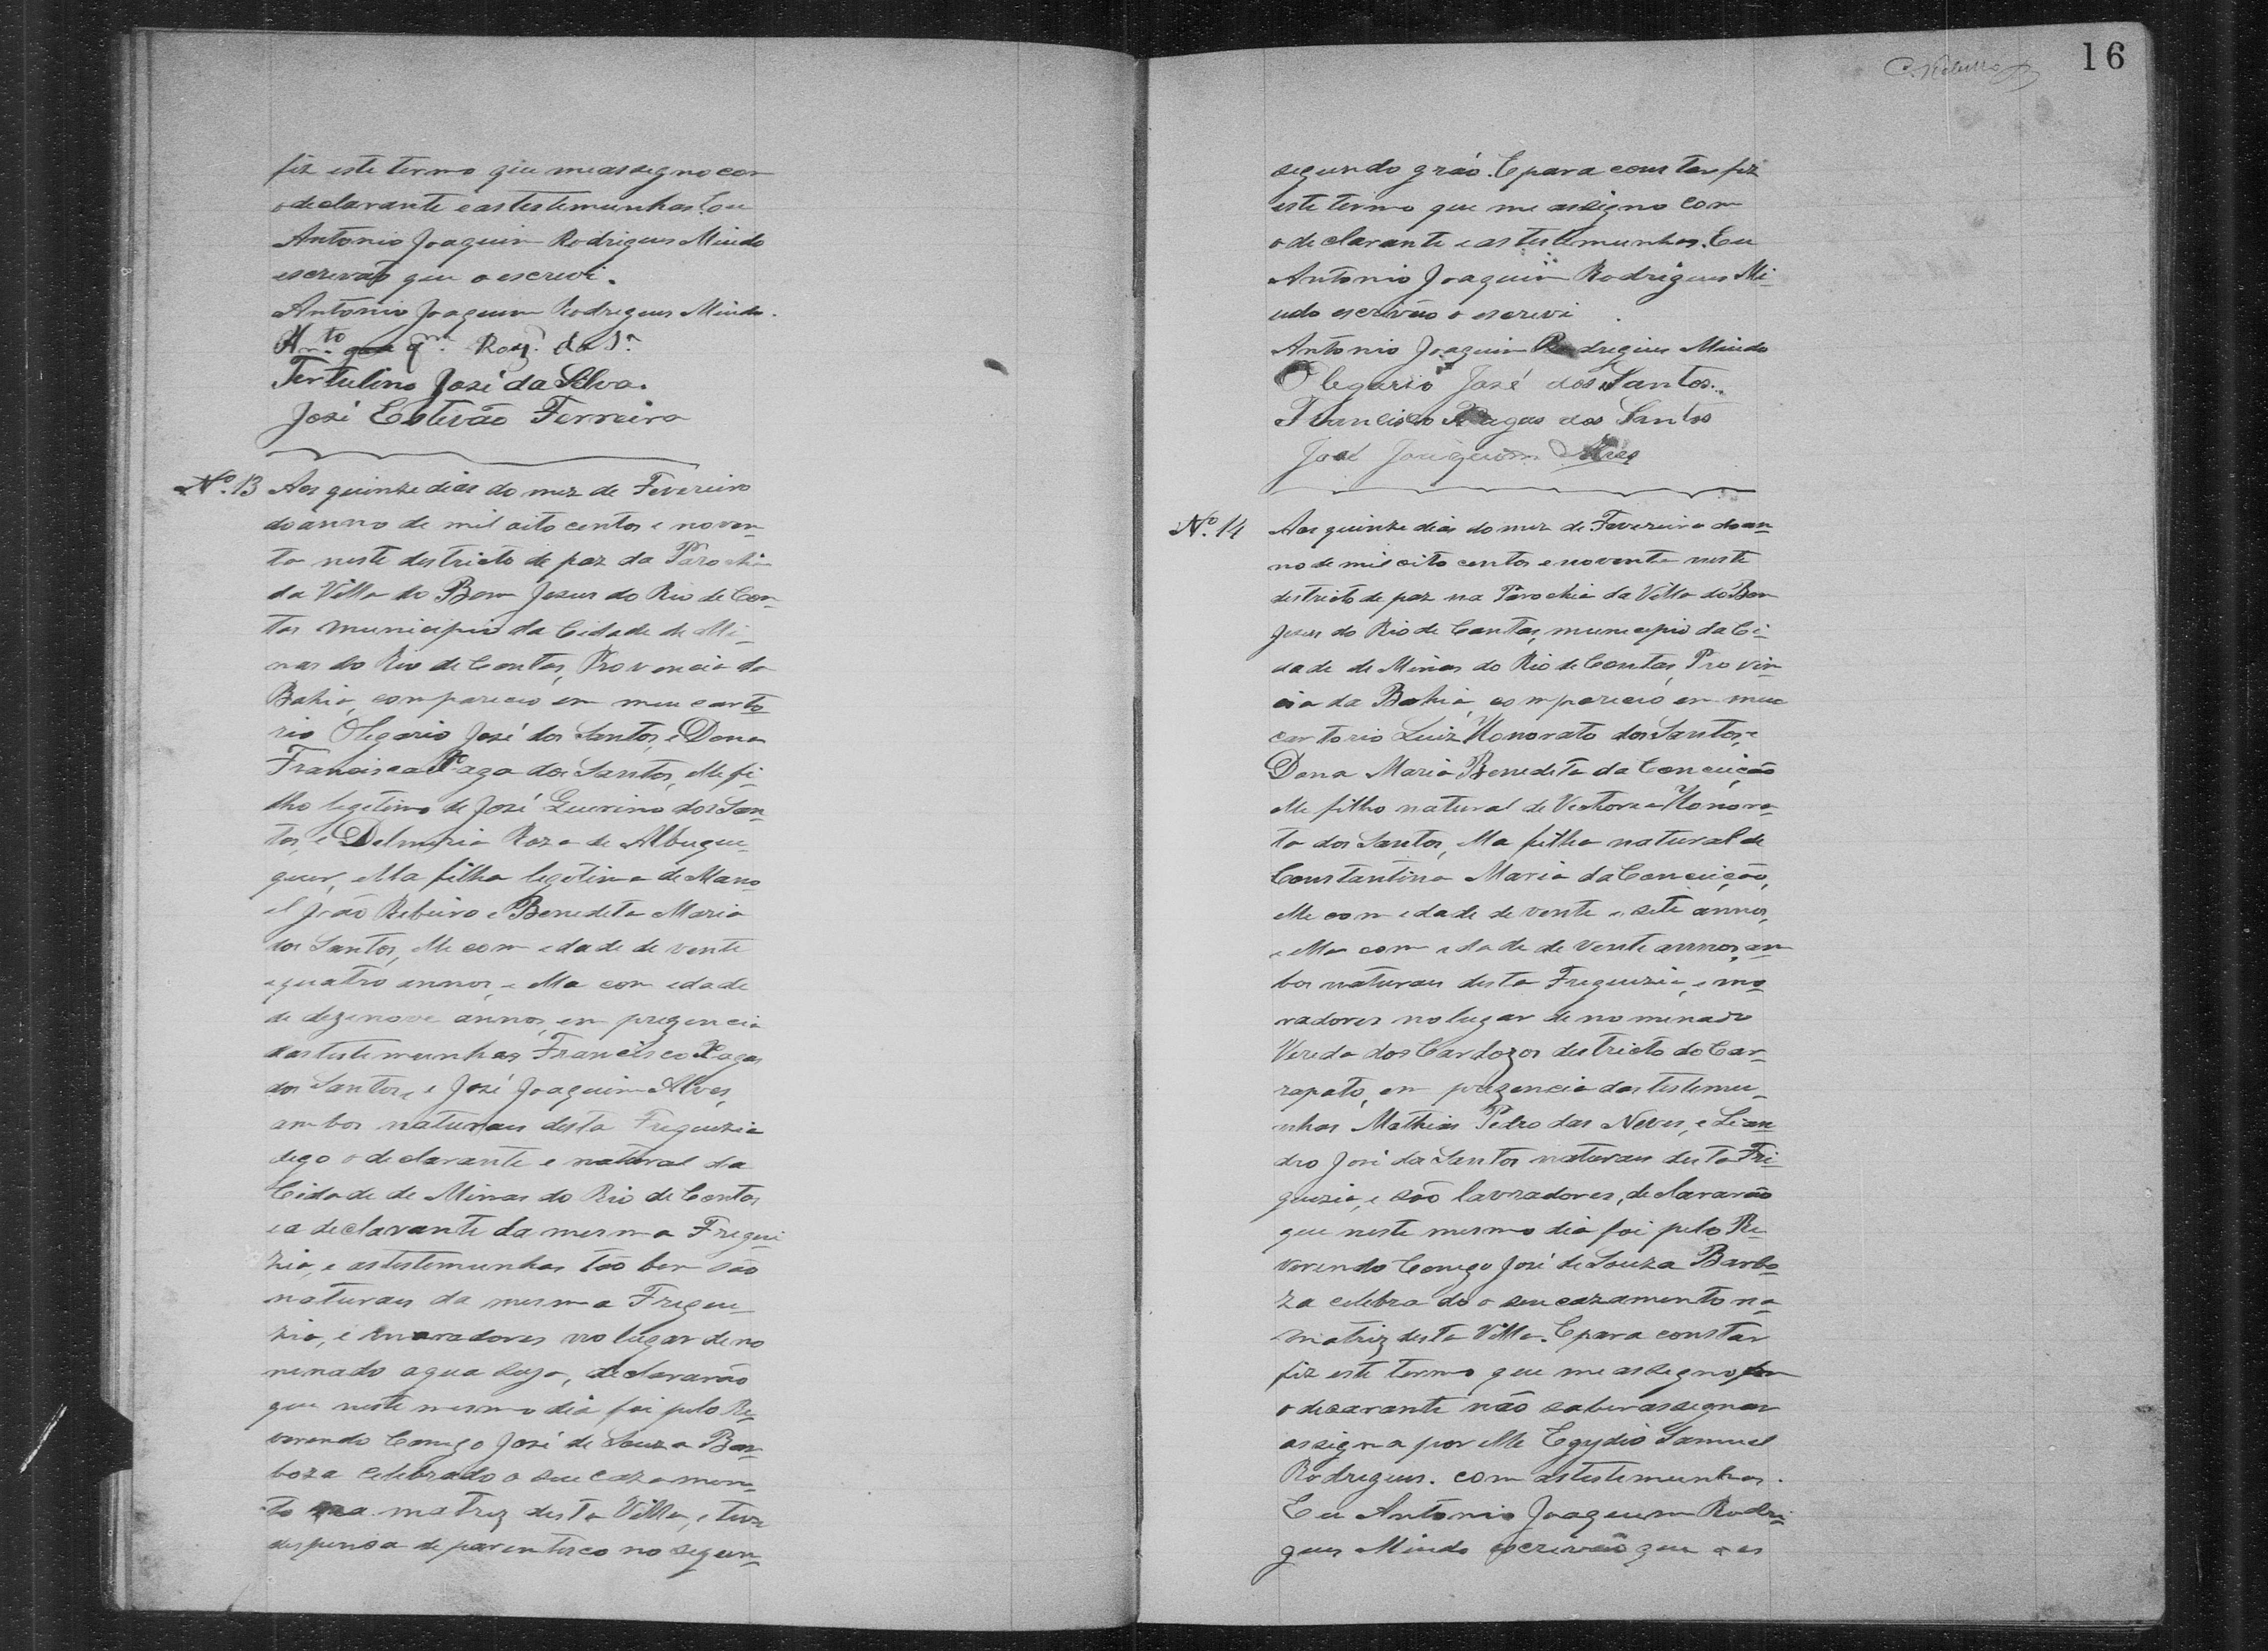 fiz este termo que me assegno com
o declarante e as testemunhas. Eu
Antonio Joaquim Rodrigues Miudo
escrevaõ que o escrevi.
Antonio Joaquim Rodrigues Miudo.
Tertulino José da Silva.
José Estevão Ferreira
Nº. 13 Aos quinze dias do mez de Fevereiro
do anno de mil oito centos e noven-
ta neste destricto de paz da Parochia
da Villa do Bom Jesus do Rio de Con-
tas municipio da Cidade de Mi-
nas do Rio de Contas, Provencia da
Bahia, compareceo em meu carto
rio Olegario José dos Santos, e Dona
Francisca Xaga dos Santos, elle fi-
lho legetimo de José Querino dos San-
tos, e Delmiria Roza de Albuque-
quer, ella filha legetima de Mano
el João Ribeiro e Benedita Maria
dos Santos, elle com edade de vente
e quatro annos, e ella com edade
de dezenove annos, em prezencia
das testemunhas Francisco Xagas
dos Santos, e José Joaquim Alves,
ambos naturaes desta Freguezia
digo o declarante e natural da
Cidade de Minas do Rio de Contas
e a declarante da mesma Fregue
zia, e as testemunhas tão bem são
naturaes da mesma Fregue-
zia, e moradores no lugar deno
menado agua suja, declararão
que neste mesmo dia foi pelo Re-
verendo Conego José de Souza Bar-
boza celebrado o seu cazamen-
to na matriz desta Villa, e teve
despensa de parentesco no segun-
16
segundo gráo. E para constar fiz
este termo que me assigno com
o declarante e as testemunhas. Eu
Antonio Joaquim Rodrigues Mi-
udo escrivão o escrevi
Antonio Joaquim Rodrigues Miudo
Olegario José dos Santos.
Francisco Xagas dos Santos
José Joaquim Alves
Nº. 14 Aos quinze dias do mez de Fevereiro do an-
no de mil oito centos e noventa neste
destricto de paz na Parochia da Villa do Bom
Jesus do Rio de Contas, municipio da Ci-
dade de Minas do Rio de Contas, Provin
cia da Bahia, compareceo em meu
cartorio Luiz Honorato dos Santos, e
Dona Maria Benedita da Conceição
elle filho natural de Victoria Honora-
ta dos Santos, ella filha natural de
Constantina Maria da Conceição,
elle com edade de vente e sete annos,
e ella com edade de vente annos, am
bos naturaes desta Freguezia, e mo
radores no lugar denomenado
Vereda dos Cardozos destricto do Car-
rapato, em prezencia das testemu-
nhas Mathias Pedro das Neves, e Lian
dro José dos Santos naturaes desta Fre-
guezia, e são lavradores, declararão
que neste mesmo dia foi pelo Re-
verendo Conego José de Souza Barbo
za celebrado o seu cazamento na
matriz desta Villa. E para constar
fiz este termo que me assegno
o decarante não saber assegnar
assigna por elle Egydio Samuel
Rodrigues. com as testemunhas.
Eu Antonio Joaquim Rodri-
gues Miudo escrivão que o es